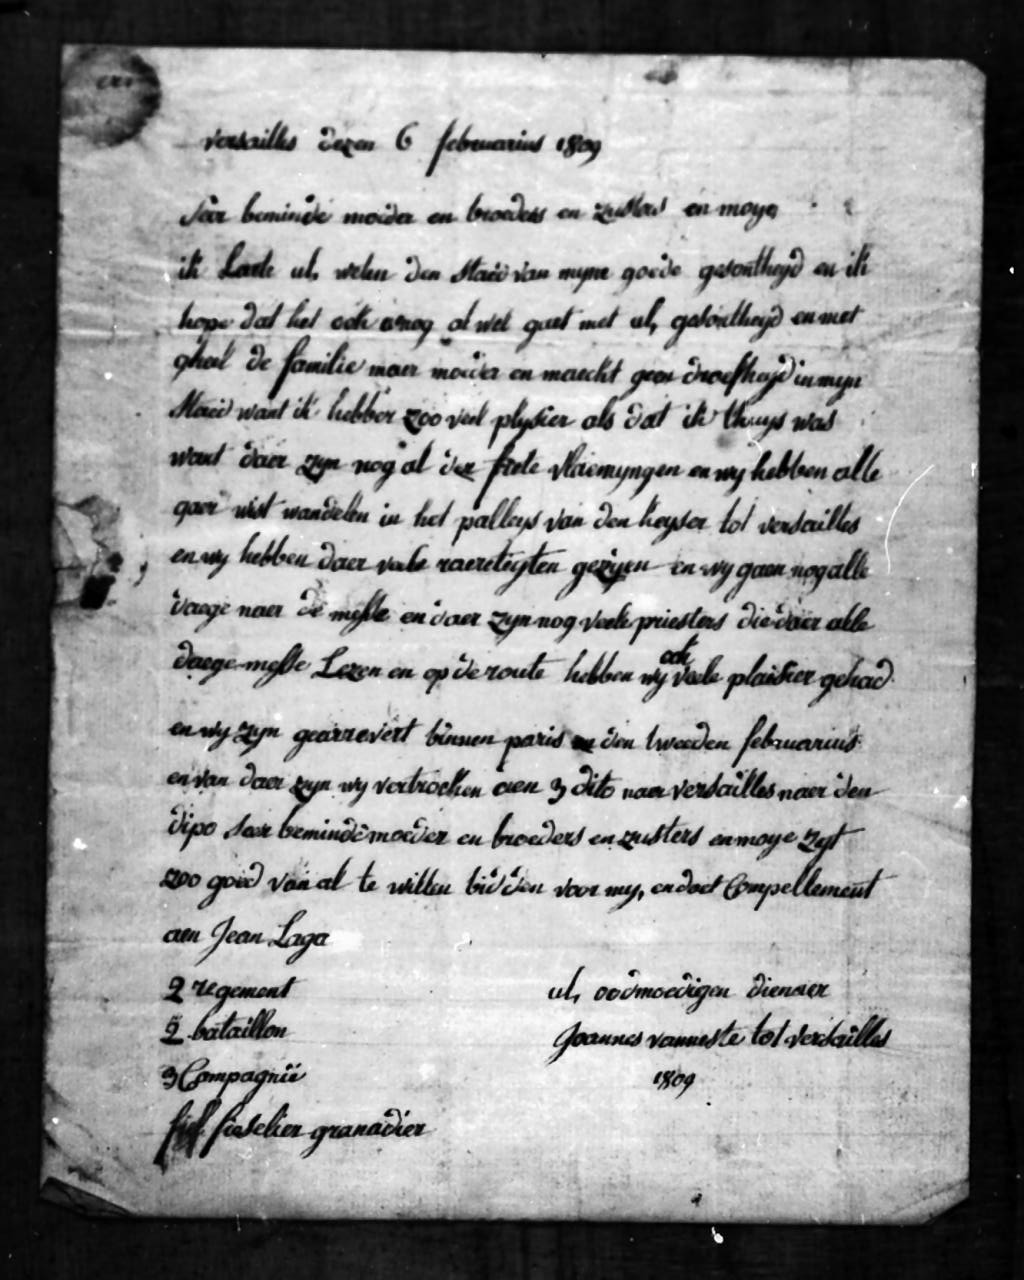 versailles dezen 6 februarius 1809
seer beminde moeder en broeders en zusters en moye
ik Laete ul, weten den staed van myne goede gesontheyd en ik
hope dat het ook nog al wel gaet met ul, gesontheyd en met
gheel de familie maer moeder en maeckt geen droefheyd in myn
staed want ik hebber zoo veel plysier als dat ik thuys was
want daer zyn nog al der fiele vlaemyngen en wy hebben alle
gaer wist wandelen in het palleys van den keyser tot versailles
en wy hebben daer veele raereteyten gezyen en wy gaen nog alle
daege naer de messe en daer zyn nog veele priesters die daer alle
daege messe Lezen en op de route hebben wy ook veele plaisier gehad
en wy zyn gearrevert binnen paris den tweeden februarius
en van daer zyn wy vertrocken den 3 dito naer versailles naer den
dipo seer beminde moeder en broeders en zusters en moye zyt
zoo goed van al te willen bidden voor my, en doet Compellement
aen Jean Laga
2 regement
2 bataillon
3 Compagnie
fieselier granadier
ul, oodmoedigen dienaer
Joannes vanneste tot versailles
1809